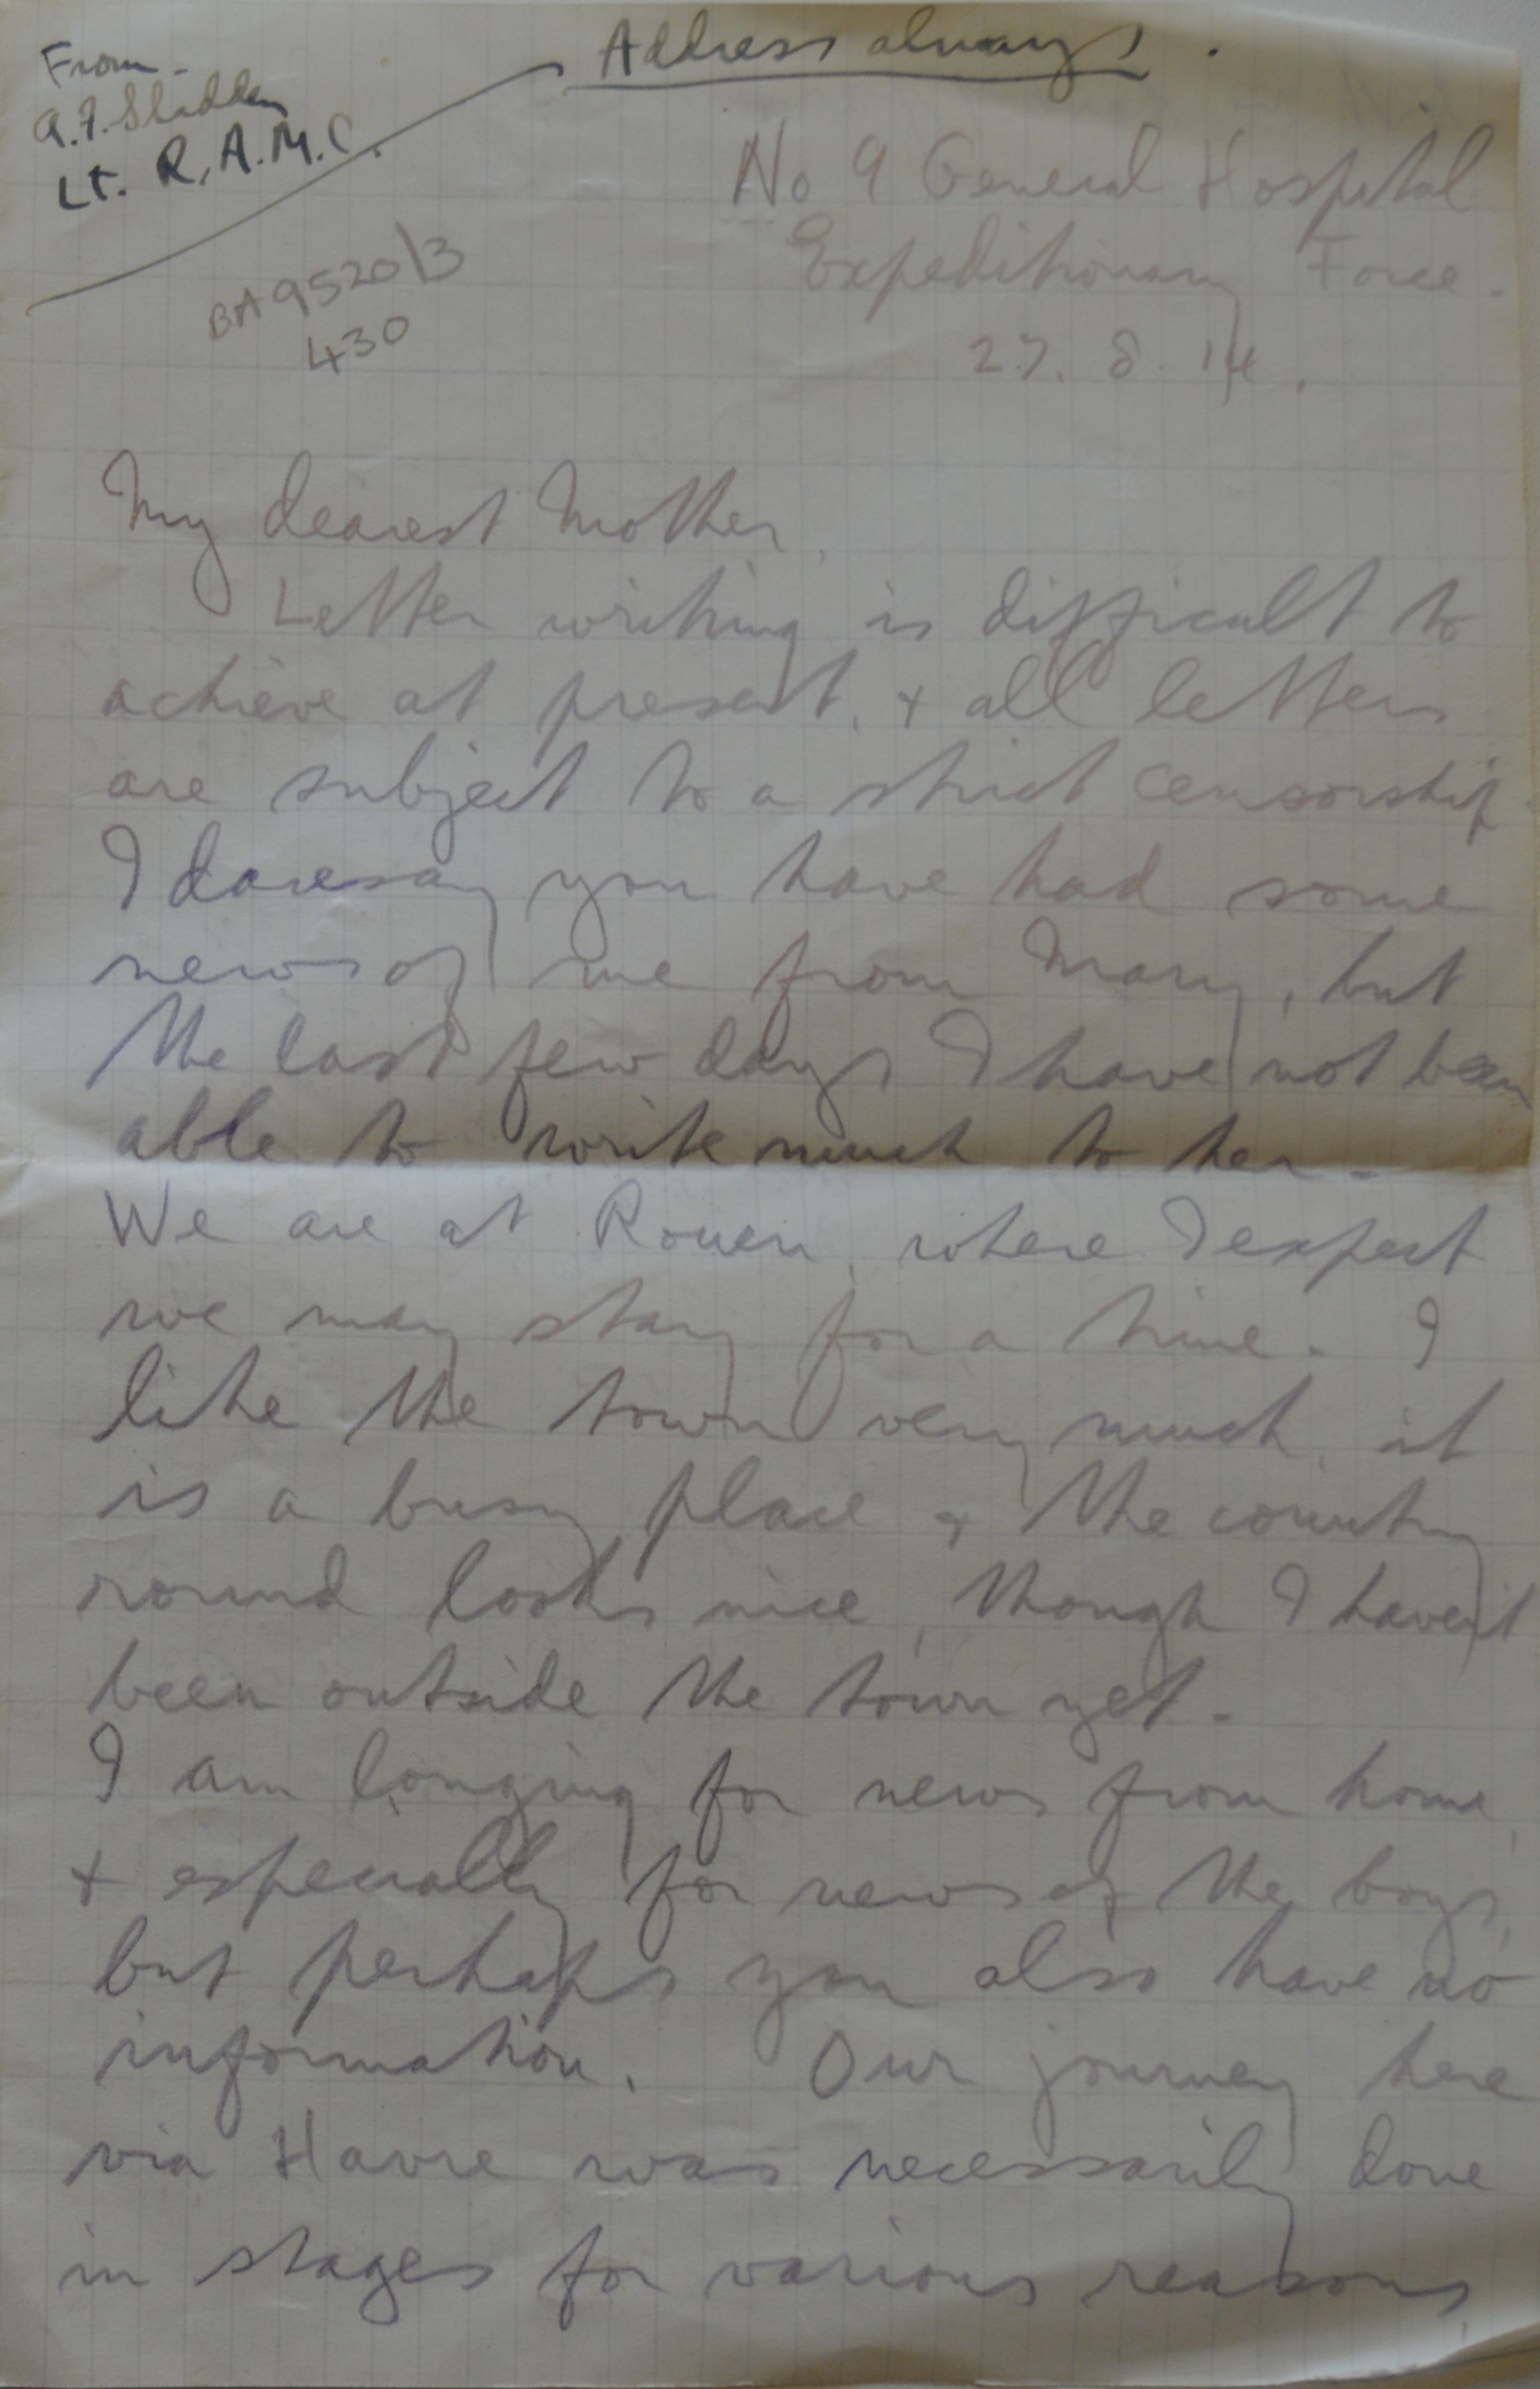 From -
A.F. Sladden
Lt. R.A.M.C.
Address always.
No 9 General Hospital
Expeditionary Force.
27. 8. 14.
BA9520/3
430
My dearest Mother,
Letter writing is difficult to
achieve at present, + all letters
are subject to a strict censorship.
I daresay you have had some
news of me from Mary, but
the last few days I have not been
able to write much to her.
We are at Rouen, where I expect
we may stay for a time. I
like the town very much, it
is a busy place + the country
round looks nice, though I haven't
been outside the town yet.
I am longing for news from home,
+ especially for news of the boys,
but perhaps you also have no
information. Our journey here
via Havre was necessarily done
in stages for various reasons,